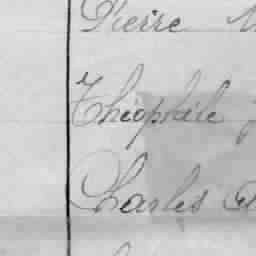 Pierre
Théophile
Charles